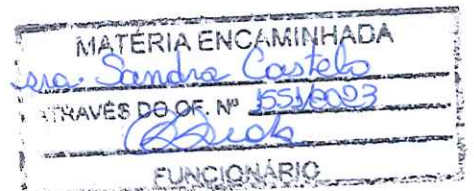 MATÉRIA ENCAMINHADA
sra. Sandra Castelo
ATRAVÉS DO OF. Nº 1551/2023
FUNCIONÁRIO